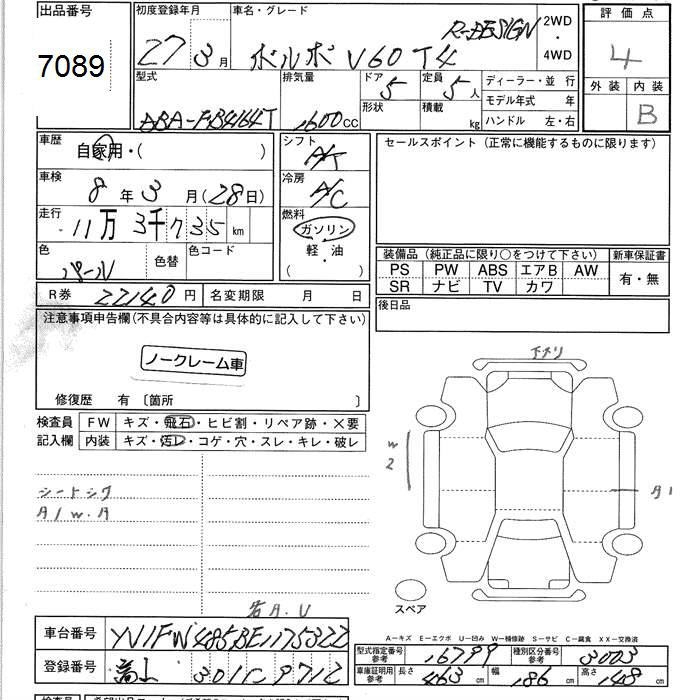 出品番号
7089
初度登録年月
27 3月
車名・グレード
ボルボ V60 T4 R-DESIGN
2WD
・
4WD
評価点
4
外装 内装
B
型式
DBA-FB4164T
排気量
1600cc
ドア
5
定員
5人
形状
積載
kg
ディーラー・並 行
モデル年式 年
ハンドル 左・右
車歴
自家用・( )
シフト
A/T
セールスポイント (正常に機能するものに限ります)
車検
8年3月(28日)
冷房
A/C
走行
11万3千735km
燃料
ガソリン
・
軽・油
( )
色
パール
色替
色コード
装備品 (純正品に限り○をつけて下さい)
新車保証書
PS PW ABS エアB AW
有・無
SR ナビ TV カワ
R券 22140円
名変期限 月 日
後日品
注意事項申告欄(不具合内容等は具体的に記入して下さい)
ノークレーム車
修復歴 有 〔箇所 〕
検査員
記入欄
FW キズ・飛石・ヒビ割・リペア跡・×要
内装 キズ・汚レ・コゲ・穴・スレ・キレ・破レ
下スリ
W
2
シートシワ
A1
スペア
A‐キズ E‐エクボ U‐凹み W‐補修跡 S‐サビ C‐腐食 XX‐交換済
車台番号
YV1FW485BE1175322
型式指定番号
参考
16799
種別区分番号
参考
3003
登録番号
301 C 9712
車庫証明用
参考
長さ 463cm
幅 186cm
高さ 148cm